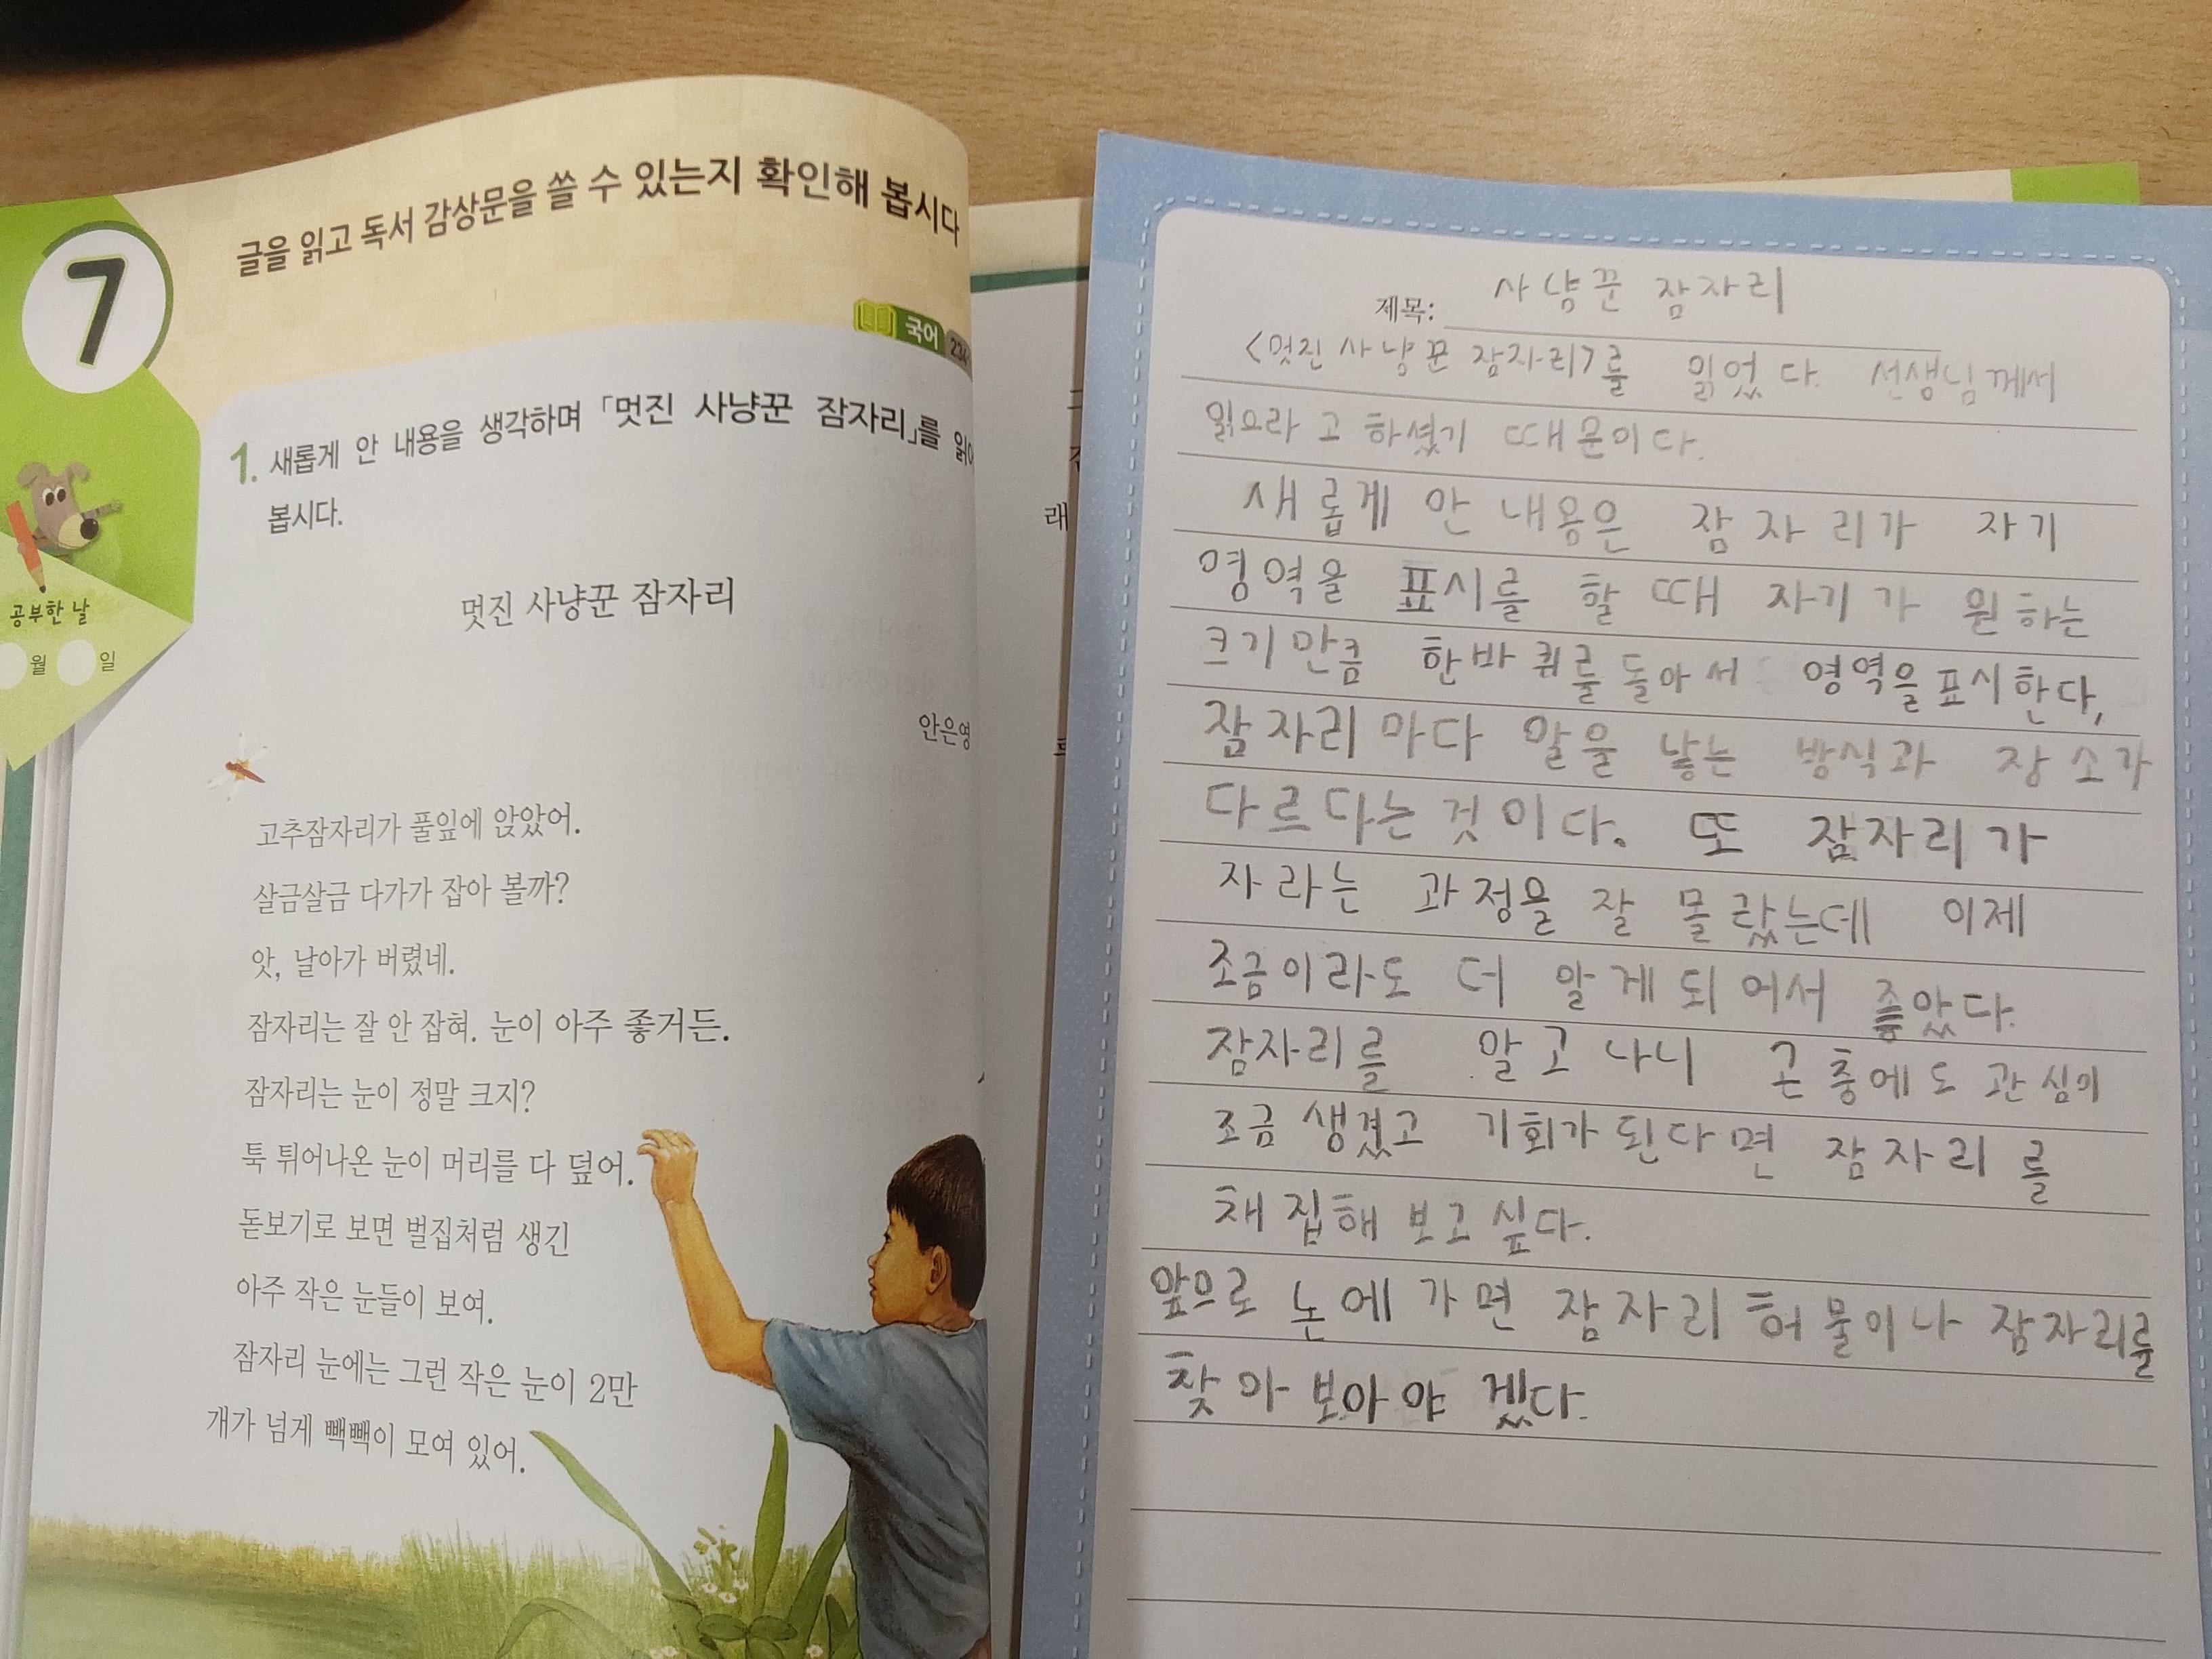 7
글을 읽고 독서 감상문을 쓸 수 있는지 확인해 봅시다
국어
1. 새롭게 안 내용을 생각하며 「멋진 사냥꾼 잠자리」를
봅시다.
공부한 날
월 일
멋진 사냥꾼 잠자리
안은영
고추잠자리가 풀잎에 앉았어.
살금살금 다가가 잡아 볼까?
앗, 날아가 버렸네.
잠자리는 잘 안 잡혀. 눈이 아주 좋거든.
잠자리는 눈이 정말 크지?
툭 튀어나온 눈이 머리를 다 덮어.
돋보기로 보면 벌집처럼 생긴
아주 작은 눈들이 보여.
잠자리 눈에는 그런 작은 눈이 2만
개가 넘게 빽빽이 모여 있어.
래
제목: 사냥꾼 잠자리
<멋진 사냥꾼 잠자리>를 읽었다. 선생님께서
읽으라고 하셨기 때문이다.
새롭게 안 내용은 잠자리가 자기
영역을 표시를 할 때 자기가 원하는
크기만큼 한바퀴를 돌아서 영역을 표시한다,
잠자리마다 알을 낳는 방식과 장소가
다르다는 것이다. 또 잠자리가
자라는 과정을 잘 몰랐는데 이제
조금이라도 더 알게되어서 좋았다.
잠자리를 알고나니 곤충에도 관심이
조금 생겼고 기회가 된다면 잠자리를
채집해 보고 싶다.
앞으로 논에 가면 잠자리 허물이나 잠자리를
찾아 보아야 겠다.